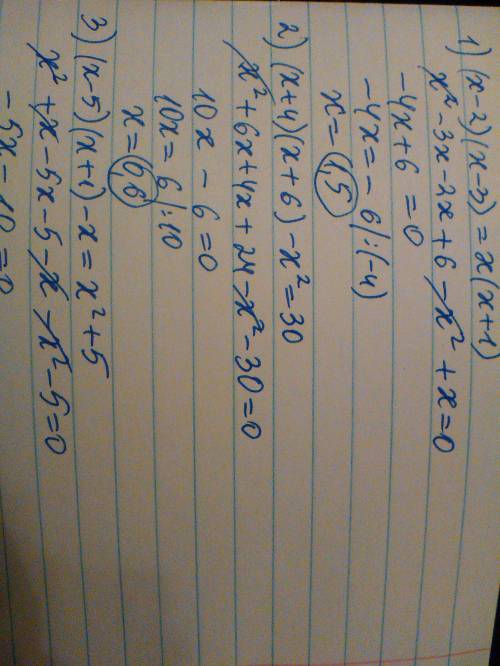 1) (x-2)(x-3) = x(x+1)
x² - 3x - 2x + 6 - x² + x = 0
-4x + 6 = 0
-4x = - 6 | :(-4)
x = 1,5
2) (x+4)(x+6) - x² = 30
x² + 6x + 4x + 24 - x² - 30 = 0
10x - 6 = 0
10x = 6 | :10
x = 0,6
3) (x-5)(x+1) - x = x² + 5
x² + x - 5x - 5 - x - x² - 5 = 0
-5x - 10 = 0